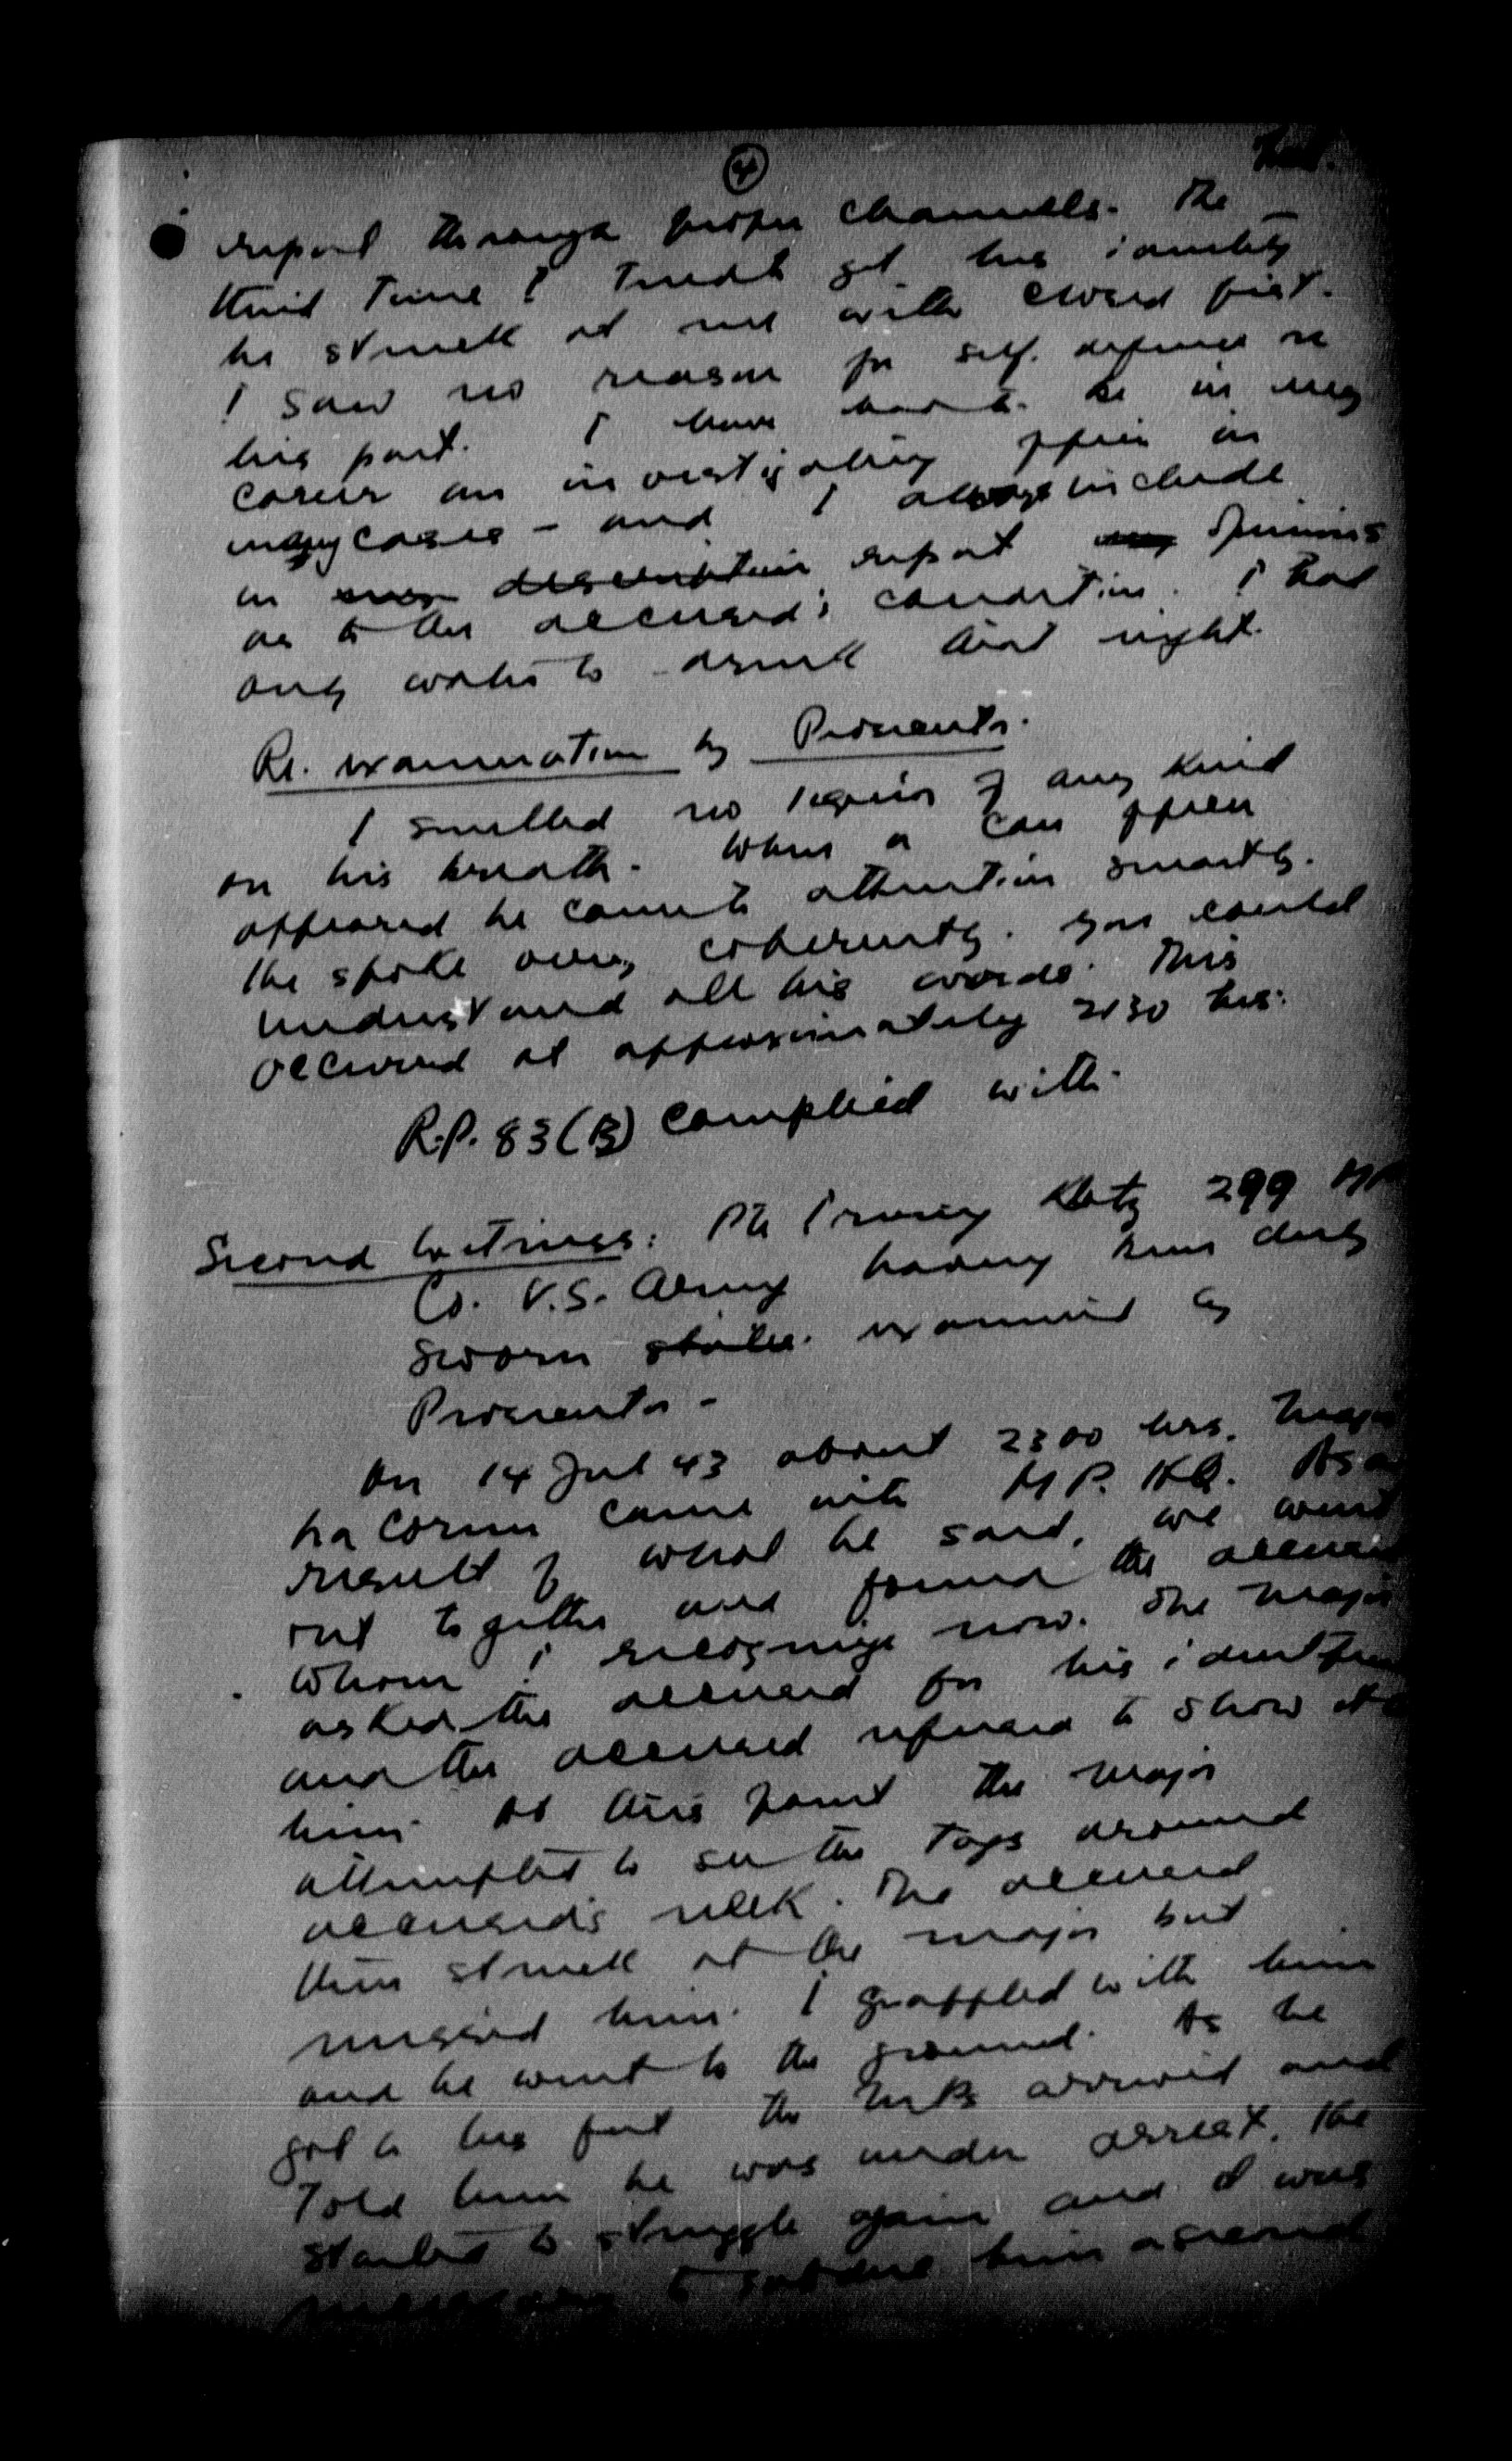 4
report through proper channels. The
third time I tried to get his identity
he struck at me with closed fist.
I saw no reason for self. defence on
his part. I have had to be in my
career an investigating officer in
many cases - and I always include
in description report opinions
as to the accused's condition. I had
only water to drink that night.
Re. examination by Prosecutor.
I smelled no liquor of any kind
on his breath. When a Can officer
appeared he came to attention smartly.
He spoke very coherently. You could
understand all his words. This
occurred at approximately 2130 hrs.
R.P. 83(B) complied with.
Second Witness: Pte Irving Katz 299 MP
Co. U.S. Army having been duly
sworn states. examined by
Prosecutor -
On 14 Jul 43 about 2300 hrs. Major
came into M.P. HQ. As a
result of what he said, we went
out together and found the accused
whom I recognize now. The major
asked the accused for his
and the accused refused to show it to
him. At this point the major
attempted to see the Tags around
accused's neck. The accused
then struck at the major but
missed him. I grappled with him
and he went to the ground. As he
got to his feet the arrived and
Told him he was under arrest. He
started to struggle again and it was
necessary to subdue him a second